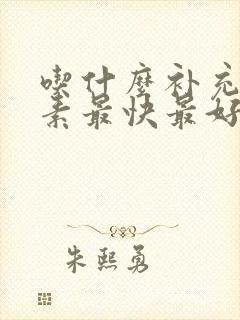 喫什麼补充
素最快最好
朱熙勇